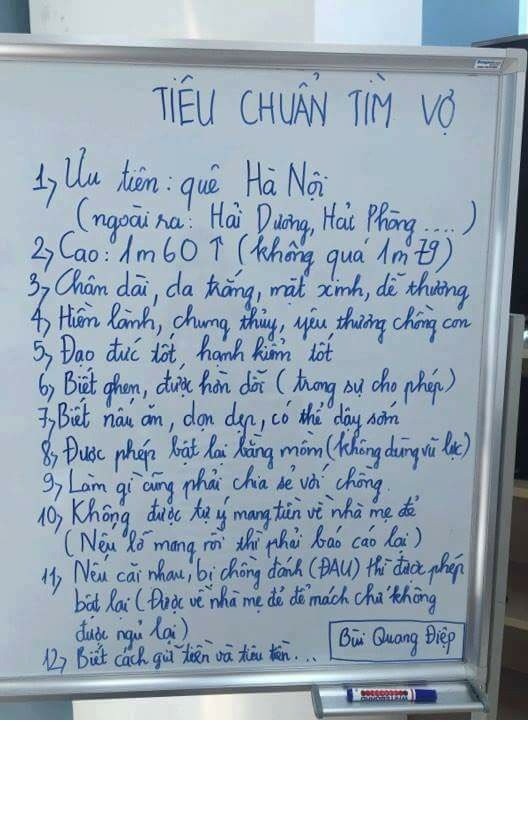 TIÊU CHUẨN TÌM VỢ
1, Ưu tiên: quê Hà Nội
(ngoài ra: Hải Dương, Hải Phòng ....)
2, Cao: 1m60 ↑ (không quá 1m79)
3, Chân dài, da trắng, mặt xinh, dễ thương
4, Hiền lành, chung thủy, yêu thương chồng con
5, Đạo đức tốt, hạnh kiểm tốt
6, Biết ghen, được hờn dỗi (trong sự cho phép)
7, Biết nấu ăn, dọn dẹp, có thể dậy sớm
8, Được phép bật lại bằng mồm (không dùng vũ lực)
9, Làm gì cũng phải chia sẻ với chồng
10, Không được tự ý mang tiền về nhà mẹ đẻ
(Nếu lỡ mang rồi thì phải báo cáo lại)
11, Nếu cãi nhau, bị chồng đánh (ĐAU) thì được phép
bật lại (Được về nhà mẹ đẻ để mách chứ không
được ngủ lại)
12, Biết cách gửi tiền và tiêu tiền...
Bùi Quang Điệp